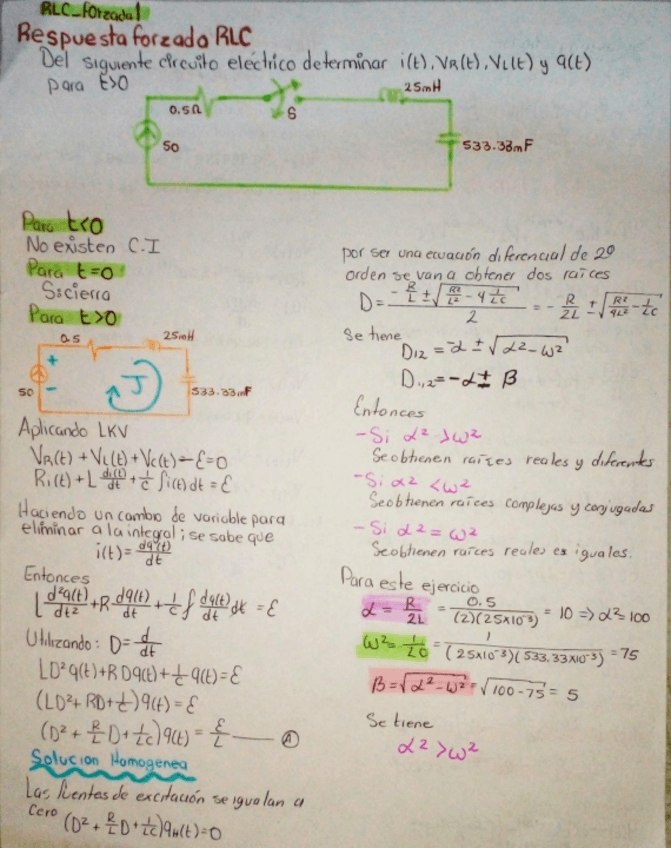 RLC_forzada1
Respuesta forzada RLC
Del siguiente circuito eléctrico determinar i(t), VR(t), VL(t) y q(t)
para t>0
25mH
0.5Ω
S
50
533.33mF
Para t<0
No existen C.I
Para t=0
S:cierra
Para t>0
0.5
25mH
+
J
-
50
533.33mF
Aplicando LKV
VR(t) + VL(t) + Vc(t) - ε=0
Ri(t) + L di(t)/dt + 1/c ∫i(t)dt = ε
Haciendo un cambio de variable para
eliminar a la integral; se sabe que
i(t) = dq(t)/dt
Entonces
L d²q(t)/dt² + R dq(t)/dt + 1/c ∫ dq(t)/dt dt = ε
Utilizando: D = d/dt
LD²q(t) + RDq(t) + 1/c q(t) = ε
(LD² + RD + 1/c) q(t) = ε
(D² + R/L D + 1/LC) q(t) = ε/L —— A
Solucion Homogenea
Las fuentes de excitación se igualan a
cero (D² + R/L D + 1/LC) qH(t) = 0
por ser una ecuación diferencial de 2º
orden se van a obtener dos raíces
D = (-R/L ± √(R²/L² - 4 1/LC))/2 = -R/2L ± √(R²/4L² - 1/LC)
Se tiene
D12 = -α ± √α² - ω²
D1,2 = -α ± β
Entonces
- Si α² > ω²
Se obtienen raíces reales y diferentes
- Si α² < ω²
Se obtienen raíces complejas y conjugadas
- Si α² = ω²
Se obtienen raíces reales e iguales.
Para este ejercicio
α = R/2L = 0.5/(2)(25x10⁻³) = 10 => α² = 100
ω² = 1/LC = 1/(25x10⁻³)(533.33x10⁻³) = 75
β = √α² - ω² = √100-75 = 5
Se tiene
α² > ω²